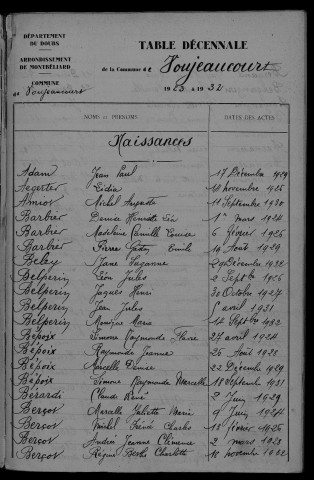 DÉPARTEMENT
DU DOUBS
ARRONDISSEMENT
DE MONTBÉLIARD
COMMUNE
de Voujeaucourt
TABLE DÉCENNALE
de la Commune de Voujeaucourt
1923 à 1932
NOMS et PRÉNOMS DATES DES ACTES
Naissances
Adam Jean Paul 17 Décembre 1929
Aegerter Lidia 11 novembre 1925
Amiot Michel Auguste 11 Septembre 1930
Barbier Denise Henriette 1er mars 1924
Barbier Madeleine Camille Louise 6 février 1926
Barbier Pierre Gaston Emile 16 Août 1929
Beley Jane Suzanne 29 Décembre 1932
Belperin Léon Jules 2 Septbre 1926
Belperin Jacques Henri 30 Octobre 1927
Belperin Jean Jules avril 1931
Belperin Monique 14 Septbre 1932
Bépoix Simone Raymonde 27 avril 1924
Bépoix Raymonde Jeanne 26 Août 1928
Bépoix Marcelle Denise 22 Décembre 1929
Bépoix Simone Raymonde Marcelle 18 Septembre 1931
Bérardi Claude René 2 Juin 1929
Berçot Marcelle Juliette Marie 9 Juin 1924
Berçot Michel Irénée Charles 13 février 1925
Berçot André Jeanne Clémence 2 mars 1928
Berçot Régine Berthe Charlotte 18 novembre 1932